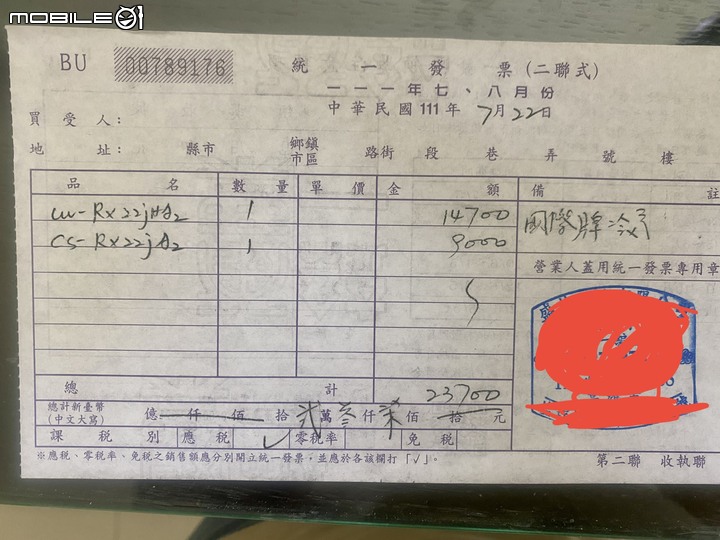 MOBILE01
BU 00789176 統一發票(二聯式)
一一一年七、八月份
中華民國111年7月22日
買受人:
地址: 縣市 鄉鎮市區 路街 段 巷 弄 號 樓
品名 數量 單價 金額 備註
CU-RX22jHA2 1 14700 國際牌冷氣
CS-RX22jA2 1 9000
營業人蓋用統一發票專用章
總計 23700
總計新臺幣(中文大寫) 億仟佰拾貳萬參仟柒佰拾元
課稅別 應稅 ✓ 零稅率 免稅
※應稅、零稅率、免稅之銷售額應分別開立統一發票,並應於各該欄打「√」。
第二聯 收執聯